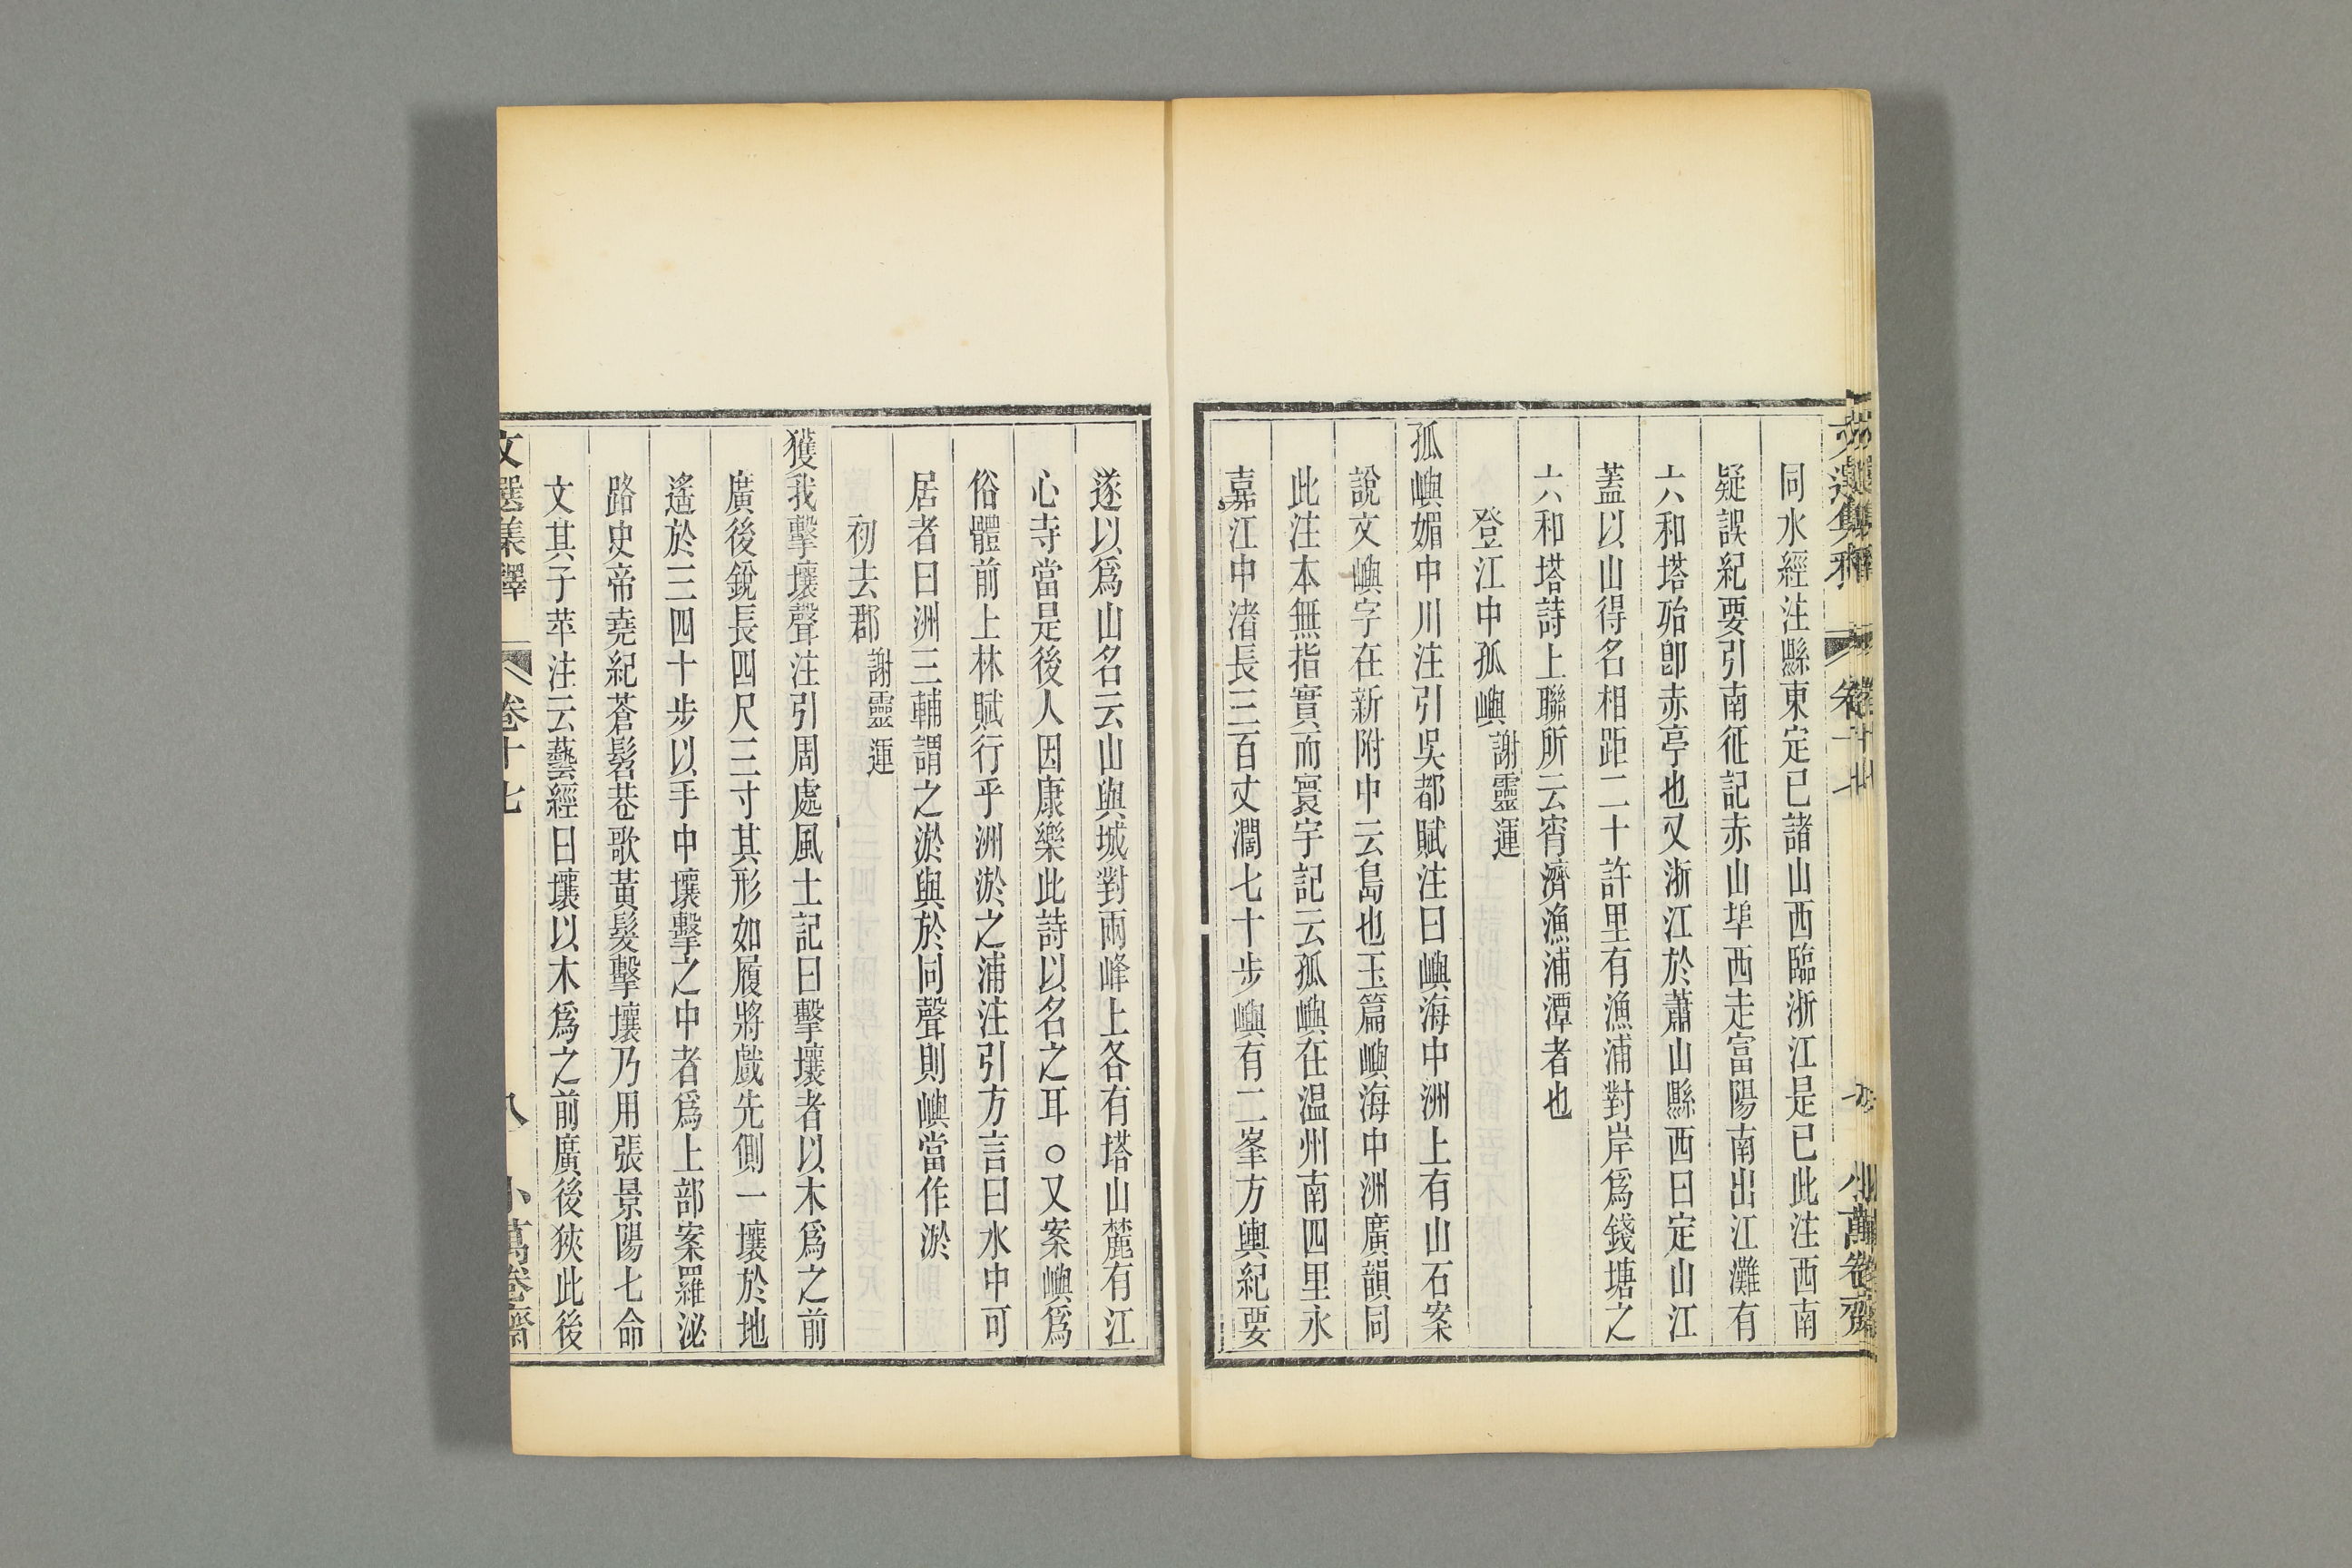 同水經注縣東定巳諸山西臨浙江是巳此注西南
疑誤紀要引南征記赤山埠西走富陽南出江灘有
六和塔殆卽赤亭也又浙江於蕭山縣西曰定山江
蓋以山得名相距二十許里有漁浦對岸爲錢塘之
六和塔詩上聯所云宵濟漁浦潭者也
登江中孤嶼 謝靈運
孤嶼媚中川注引吳都賦注曰嶼海中洲上有山石案
說文嶼字在新附中云島也玉篇嶼海中洲廣韻同
此注本無指實而寰宇記云孤嶼在温州南四里永
嘉江中渚長三百丈濶七十步嶼有二峯方輿紀要
遂以爲山名云山與城對兩峰上各有塔山麓有江
心寺當是後人因康樂此詩以名之耳○又案嶼爲
俗體前上林賦行乎洲淤之浦注引方言曰水中可
居者曰洲三輔謂之淤與於同聲則嶼當作淤
初去郡 謝靈運
獲我擊壤聲注引周處風土記曰擊壤者以木爲之前
廣後銳長四尺三寸其形如履將戲先側一壤於地
遙於三四十步以手中壤擊之中者爲上部案羅泌
路史帝堯紀蒼髫巷歌黃髮擊壤乃用張景陽七命
文其子苹注云藝經曰壤以木爲之前廣後狹此後
文選集釋 卷十七 八 小萬卷齋